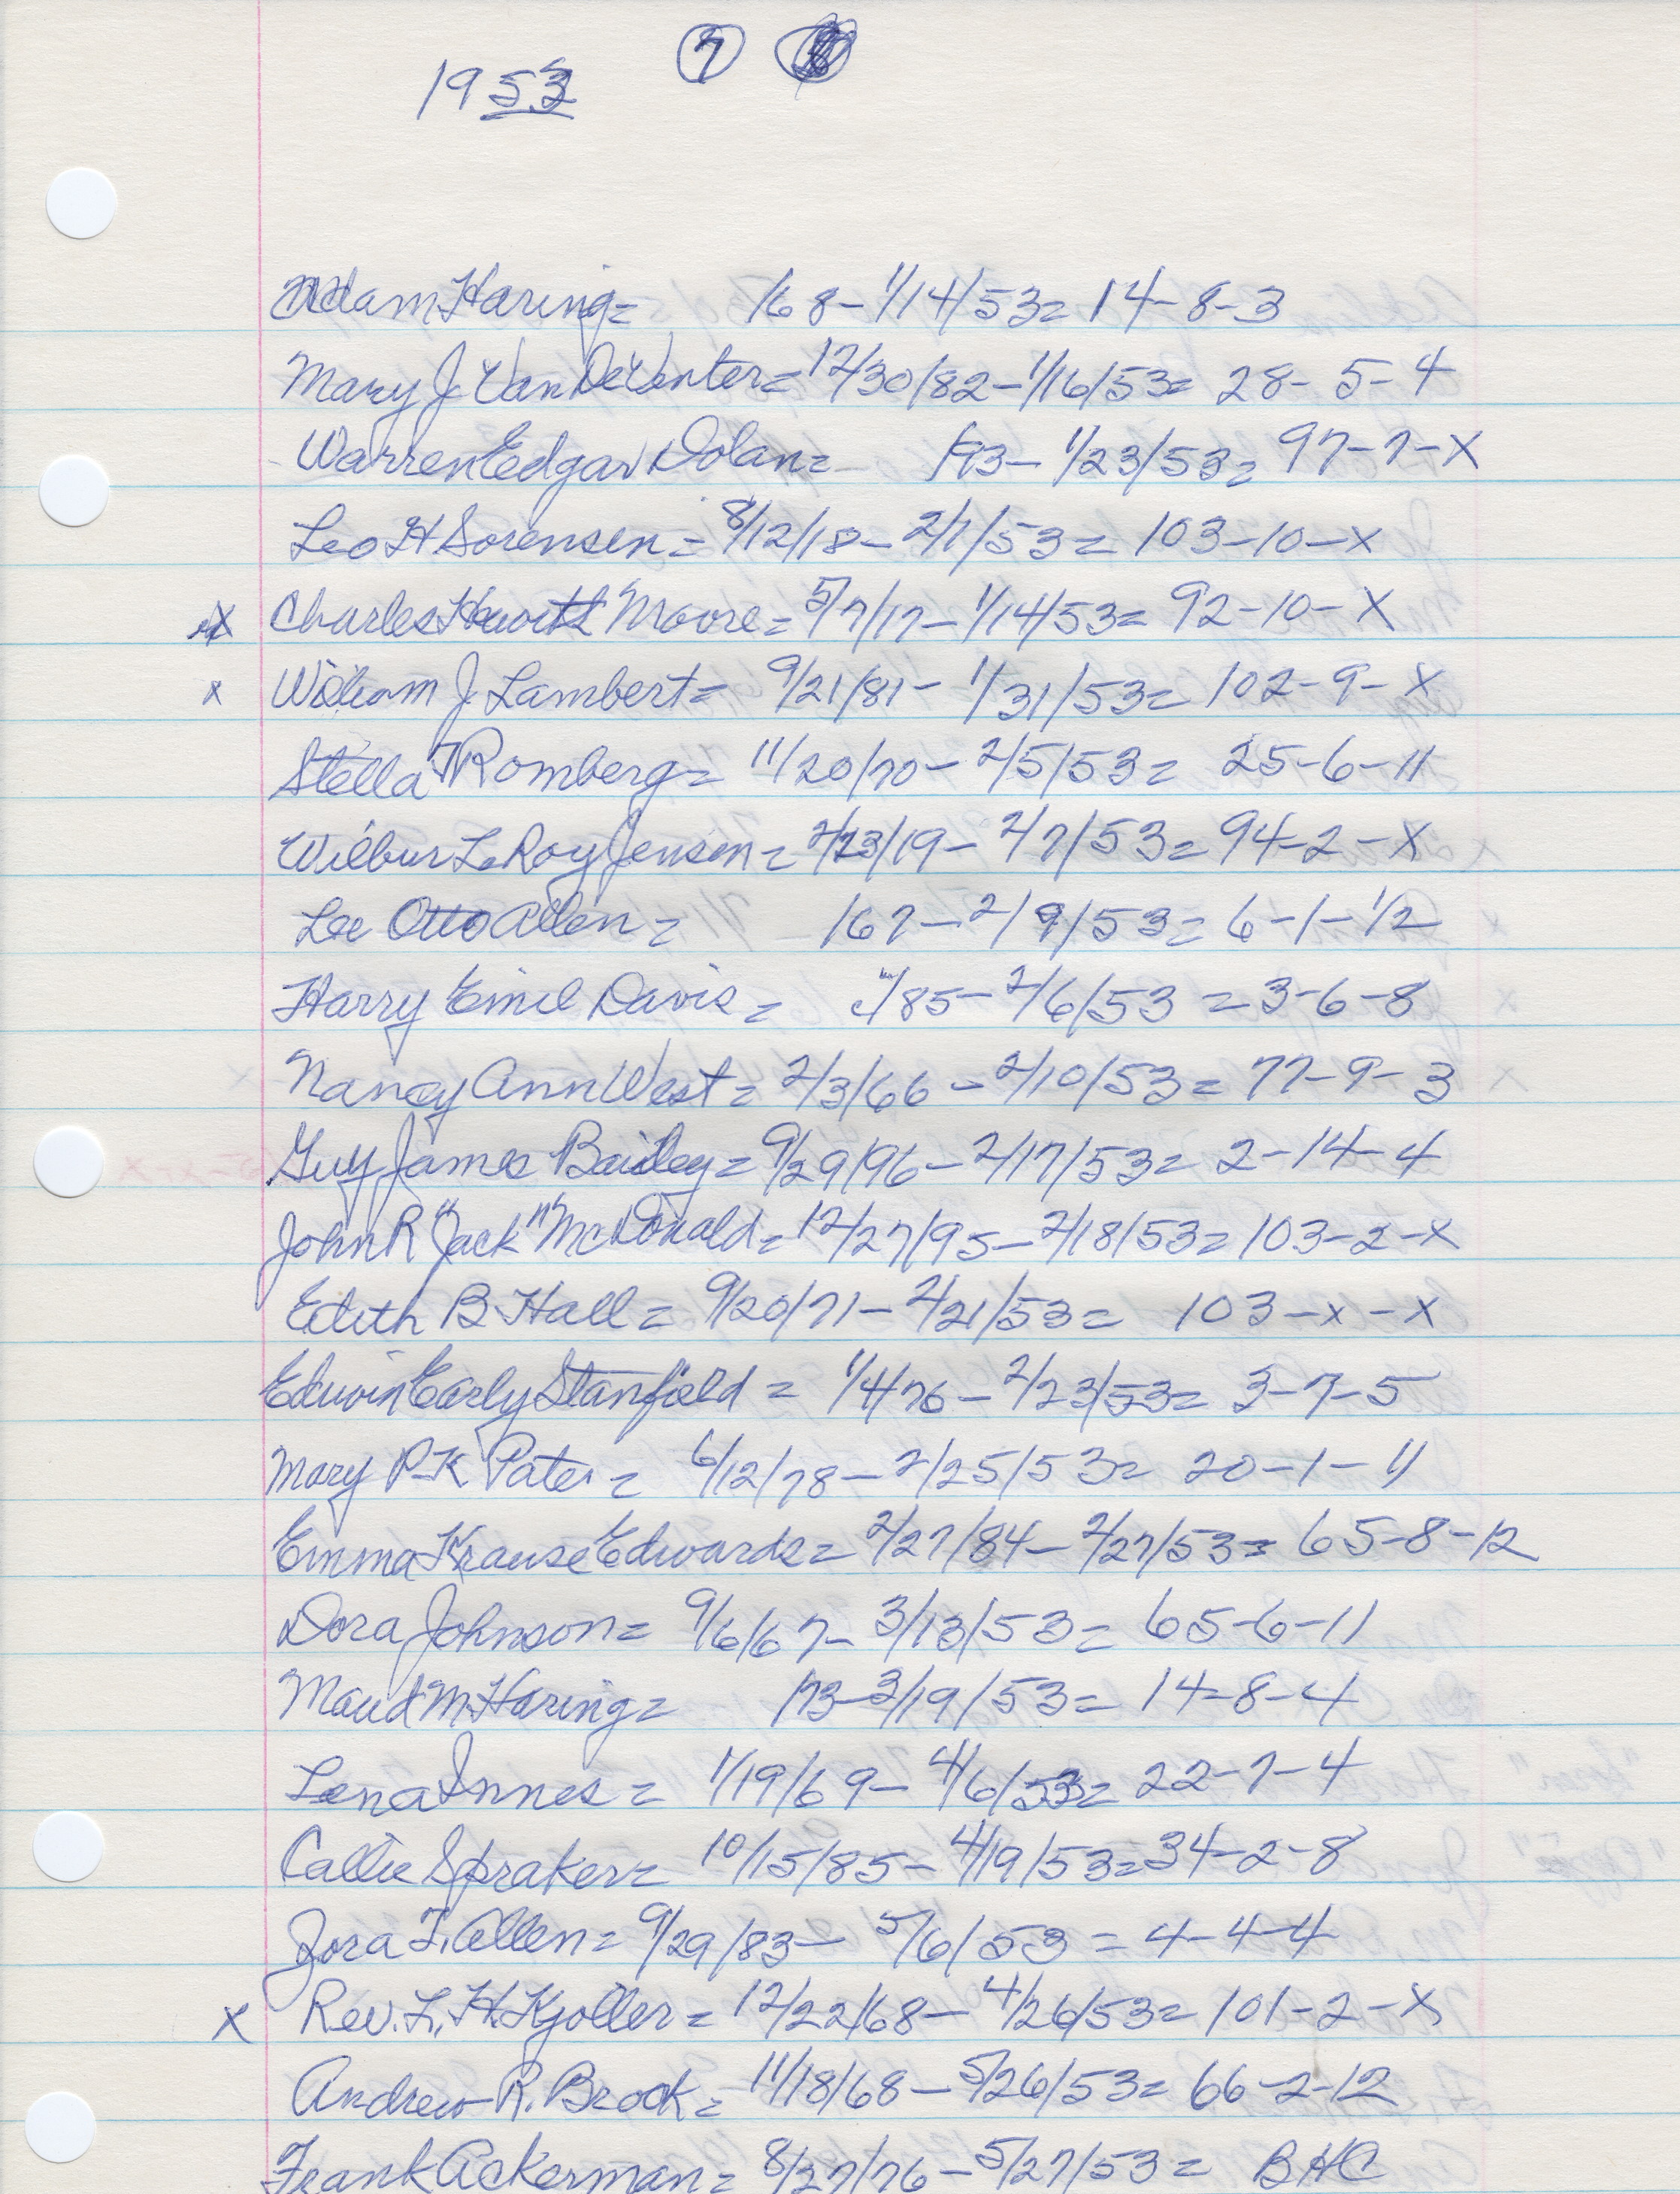 7
1953
Adam Haring = /68 - 1/14/53 = 14-8-3
Mary J. Van DeVenter = 12/30/82 - 1/16/53 = 28-5-4
Warren Edgar Dolan = /93 - 1/23/53 = 97-7-X
Leo H Sorensen = 8/12/18 - 2/1/53 = 103-10-X
X Charles Moore = 5/7/17 - 1/14/53 = 92-10-X
X William J. Lambert = 9/21/81 - 1/31/53 = 102-9-X
Stella F Romberg = 11/20/70 - 2/5/53 = 25-6-11
Wilbur LeRoy Jensen = 2/23/19 - 2/7/53 = 94-2-X
Lee Otto Allen = /67 - 2/9/53 = 6-1-1/2
Harry Emil Davis = /85 - 2/6/53 = 3-6-8
Nancy Ann West = 2/3/66 - 2/10/53 = 77-9-3
Guy James Bailey = 9/29/96 - 2/17/53 = 2-14-4
John R "Jack" McDonald = 12/27/95 - 2/18/53 = 103-2-X
Edith B. Hall = 9/20/71 - 2/21/53 = 103-X-X
Edwin Early Stanfield = 1/4/76 - 2/23/53 = 3-7-5
Mary P.K Pater = 6/12/78 - 2/25/53 = 20-1-11
Emma Krause Edwards = 2/27/84 - 2/27/53 = 65-8-12
Dora Johnson = 9/6/67 - 3/13/53 = 65-6-11
Maud M. Haring = /73 - 3/19/53 = 14-8-4
Lena Innes = 1/19/69 - 4/6/53 = 22-7-4
Callie Spraker = 10/15/85 - 4/19/53 = 34-2-8
Zora F. Allen = 9/29/83 - 5/6/53 = 4-4-4
X Rev. L. H. Kjoller = 12/22/68 - 4/26/53 = 101-2-X
Andrew R. Brock = 11/18/68 - 5/26/53 = 66-2-12
Frank Ackerman = 8/27/76 - 5/27/53 = BHC